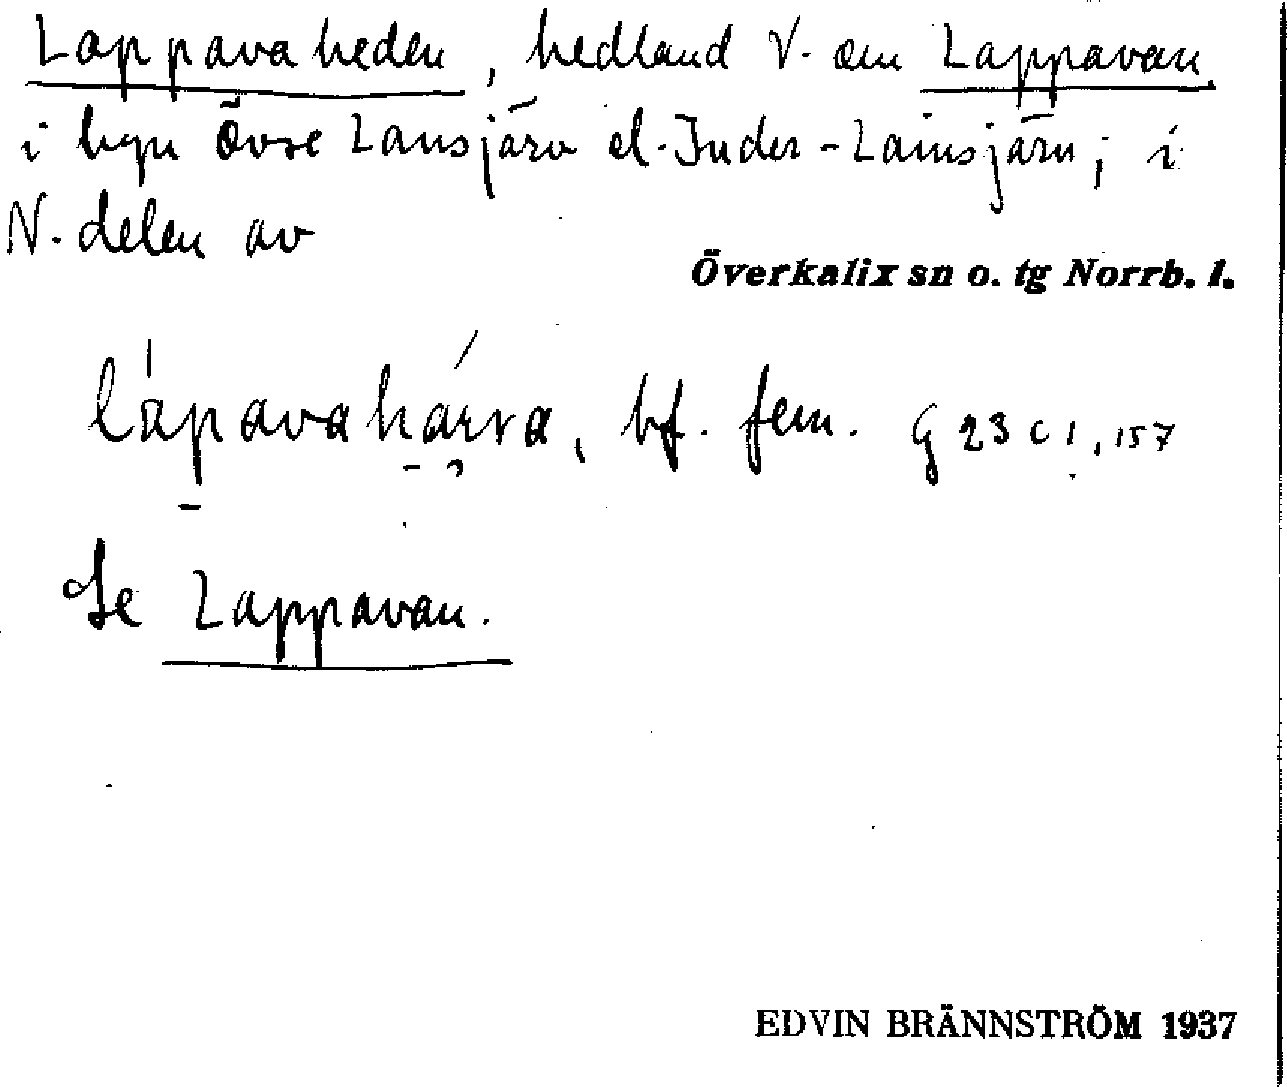 Lappavaheden, hedland V. om Lappavan
i byn Övre Lansjärv el. Inder-Lainsjärv; i
N. delen av
Överkalix sn o. tg Norrb. l.
bf. fem. G 23 c 1, 157
Se Lappavan.
EDVIN BRÄNNSTRÖM 1937